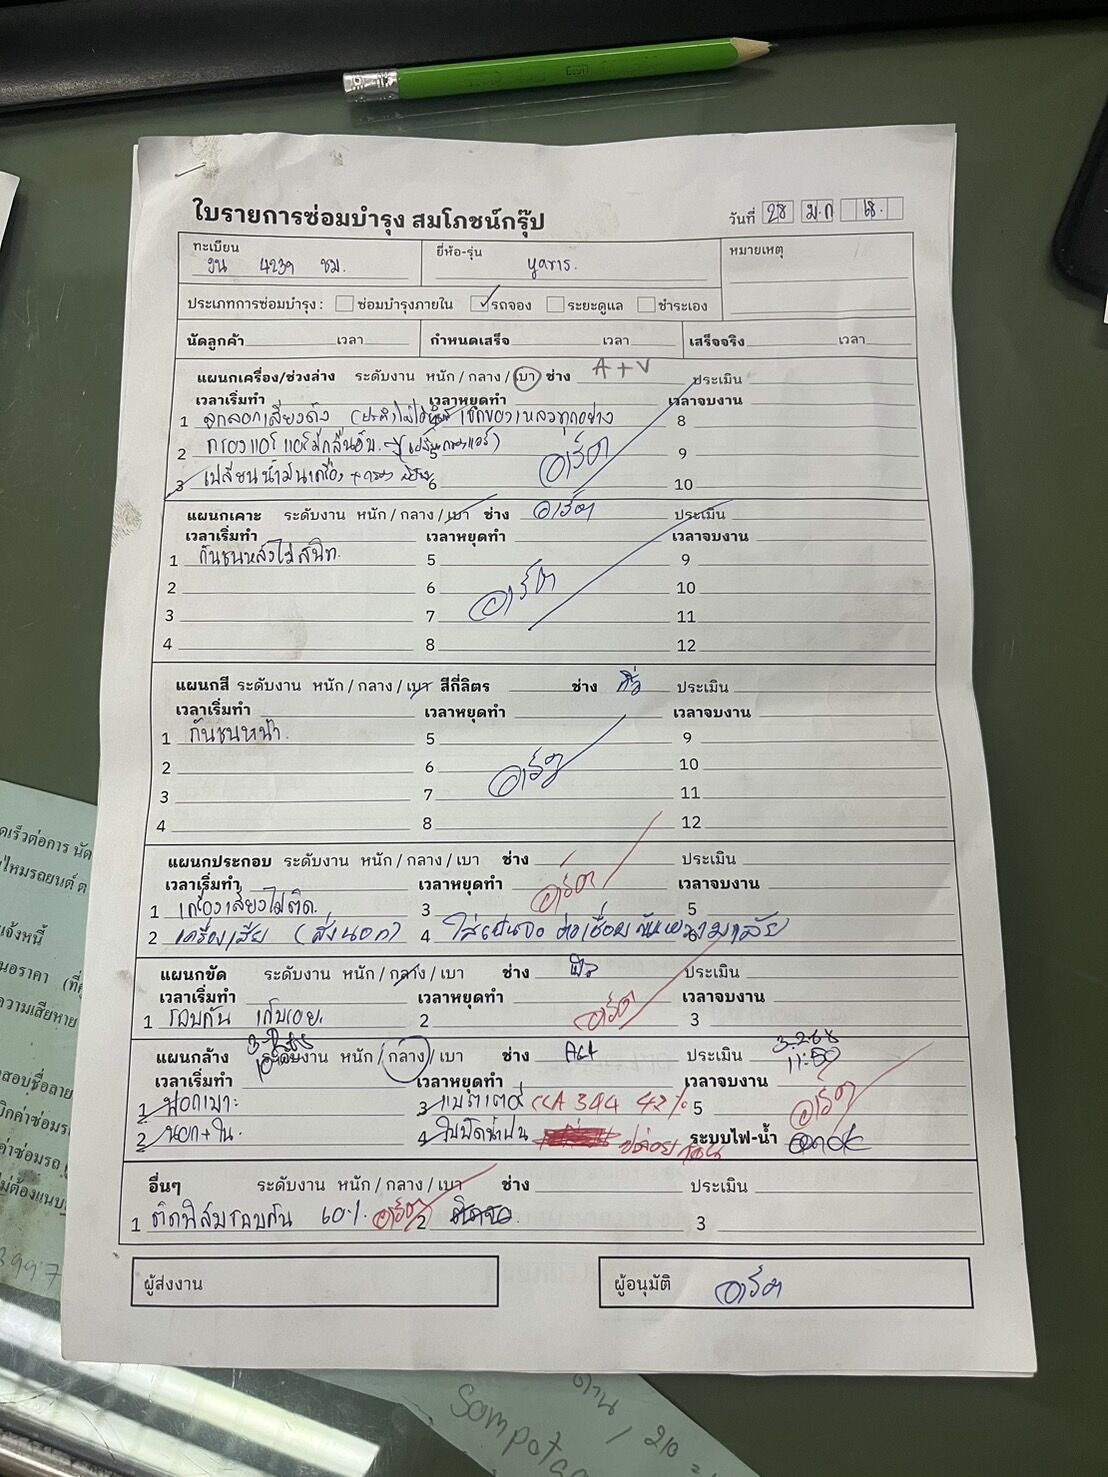 ใบรายการซ่อมบำรุง สมโภชน์กรุ๊ป
วันที่ 28 ม.ค 68.
ทะเบียน ขน 4239 ชม.
ยี่ห้อ-รุ่น yaris.
หมายเหตุ
ประเภทการซ่อมบำรุง : ซ่อมบำรุงภายใน รถจอง ระยะดูแล ชำระเอง
นัดลูกค้า เวลา กำหนดเสร็จ เวลา เสร็จจริง เวลา
แผนกเครื่อง/ช่วงล่าง ระดับงาน หนัก / กลาง / เบา ช่าง A+V ประเมิน
เวลาเริ่มทำ เวลาหยุดทำ เวลาจบงาน
1 ลูกลอกเสียงดัง เช็กของเหลวทุกอย่าง 8
2 กรองแอร์ แอร์มีกลิ่นอับ. (เปลี่ยนกรองแอร์) 5 9
3 เปลี่ยนน้ำมันเครื่อง + กรอง 6 อาร์ต 10
แผนกเคาะ ระดับงาน หนัก / กลาง / เบา ช่าง อาร์ต ประเมิน
เวลาเริ่มทำ เวลาหยุดทำ เวลาจบงาน
1 กันชนหลังไม่สนิท. 5 9
2 6 อาร์ต 10
3 7 11
4 8 12
แผนกสี ระดับงาน หนัก / กลาง / เบา สีกี่ลิตร ช่าง ประเมิน
เวลาเริ่มทำ เวลาหยุดทำ เวลาจบงาน
1 กันชนหน้า. 5 9
2 6 อาร์ต 10
3 7 11
4 8 12
แผนกประกอบ ระดับงาน หนัก / กลาง / เบา ช่าง อาร์ต ประเมิน
เวลาเริ่มทำ เวลาหยุดทำ เวลาจบงาน
1 เครื่องเสียงไม่ติด. 3 5
2 เครื่องเสีย (ส่งนอก) 4 6
แผนกขัด ระดับงาน หนัก / กลาง / เบา ช่าง ประเมิน
เวลาเริ่มทำ เวลาหยุดทำ เวลาจบงาน
1 รอบคัน เก็บรอย. 2 อาร์ต 3
แผนกล้าง ระดับงาน หนัก / กลาง / เบา ช่าง ประเมิน 3-2-68
เวลาเริ่มทำ เวลาหยุดทำ เวลาจบงาน 11:50
1 ฟอกเบาะ 3 แบตเตอรี่ CCA 344 42% 5 อาร์ต
2 นอก+ใน. 4 ใบปัดน้ำฝน ปล่อยก่อน ระบบไฟ-น้ำ ok
อื่นๆ ระดับงาน หนัก / กลาง / เบา ช่าง ประเมิน
1 ติดฟิล์มรอบคัน 60% อาร์ต 2 3
ผู้ส่งงาน
ผู้อนุมัติ อาร์ต